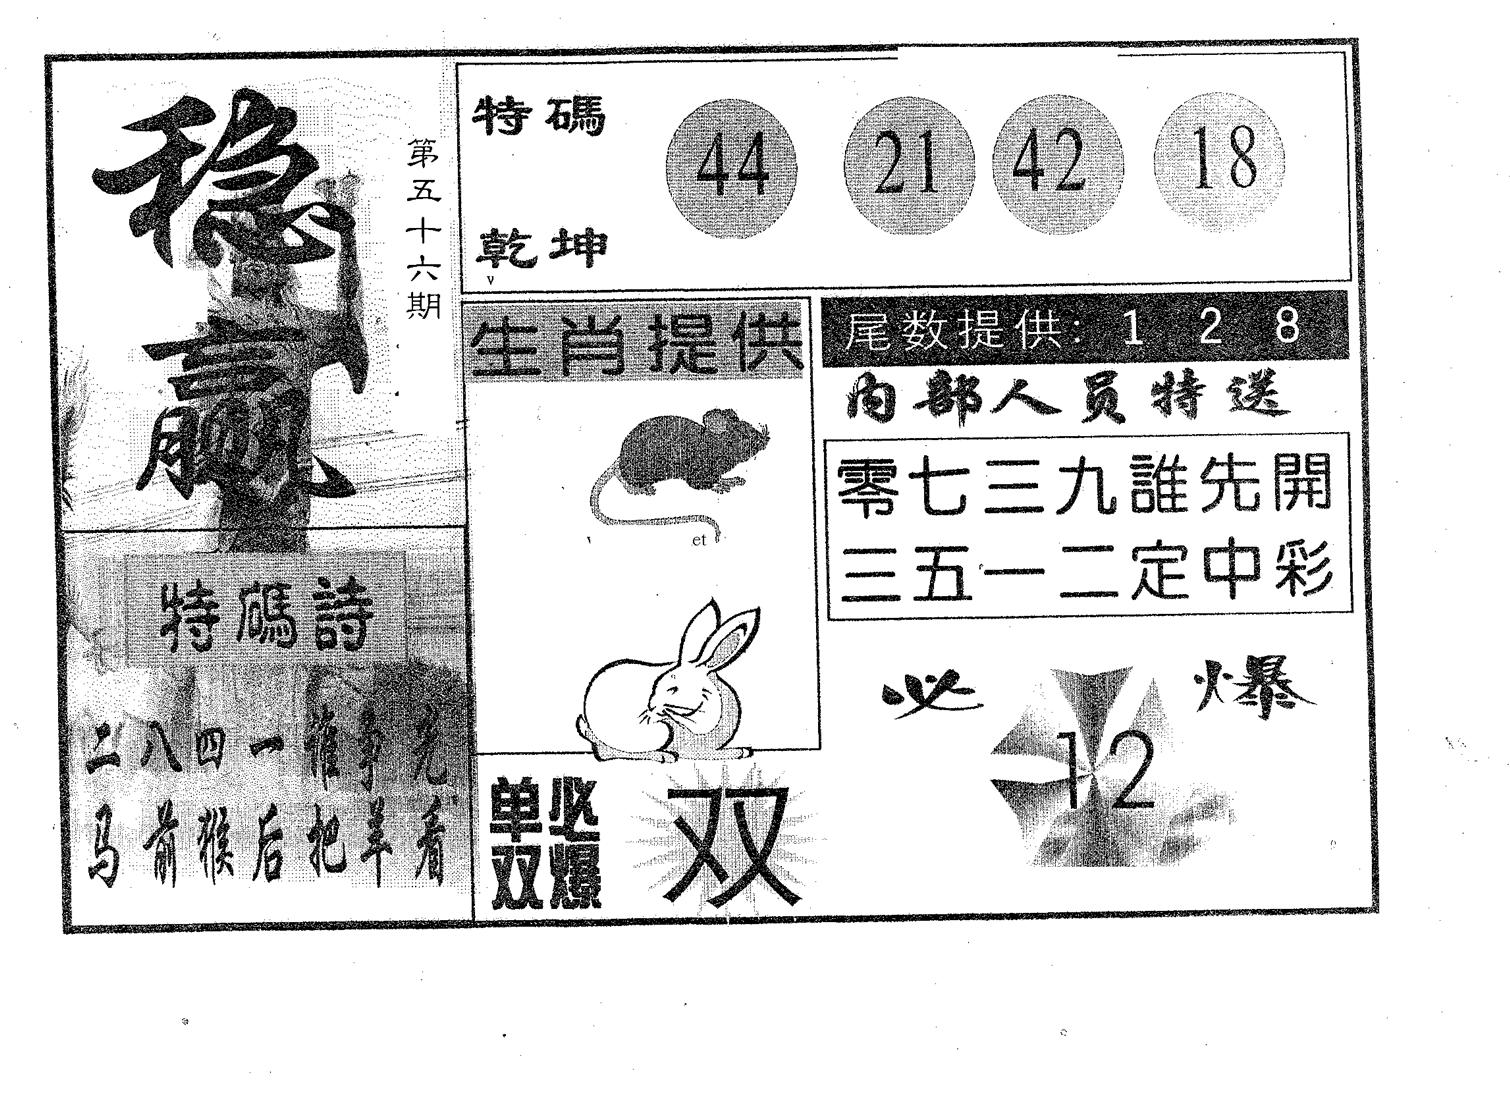 稳赢
第五十六期
特碼
乾坤
44 21 42 18
生肖提供
et
尾数提供: 1 2 8
内部人员特送
零七三九誰先開
三五一二定中彩
特碼詩
二八四一誰争先
马前猴后把羊看
单必
双爆
双
必爆
12